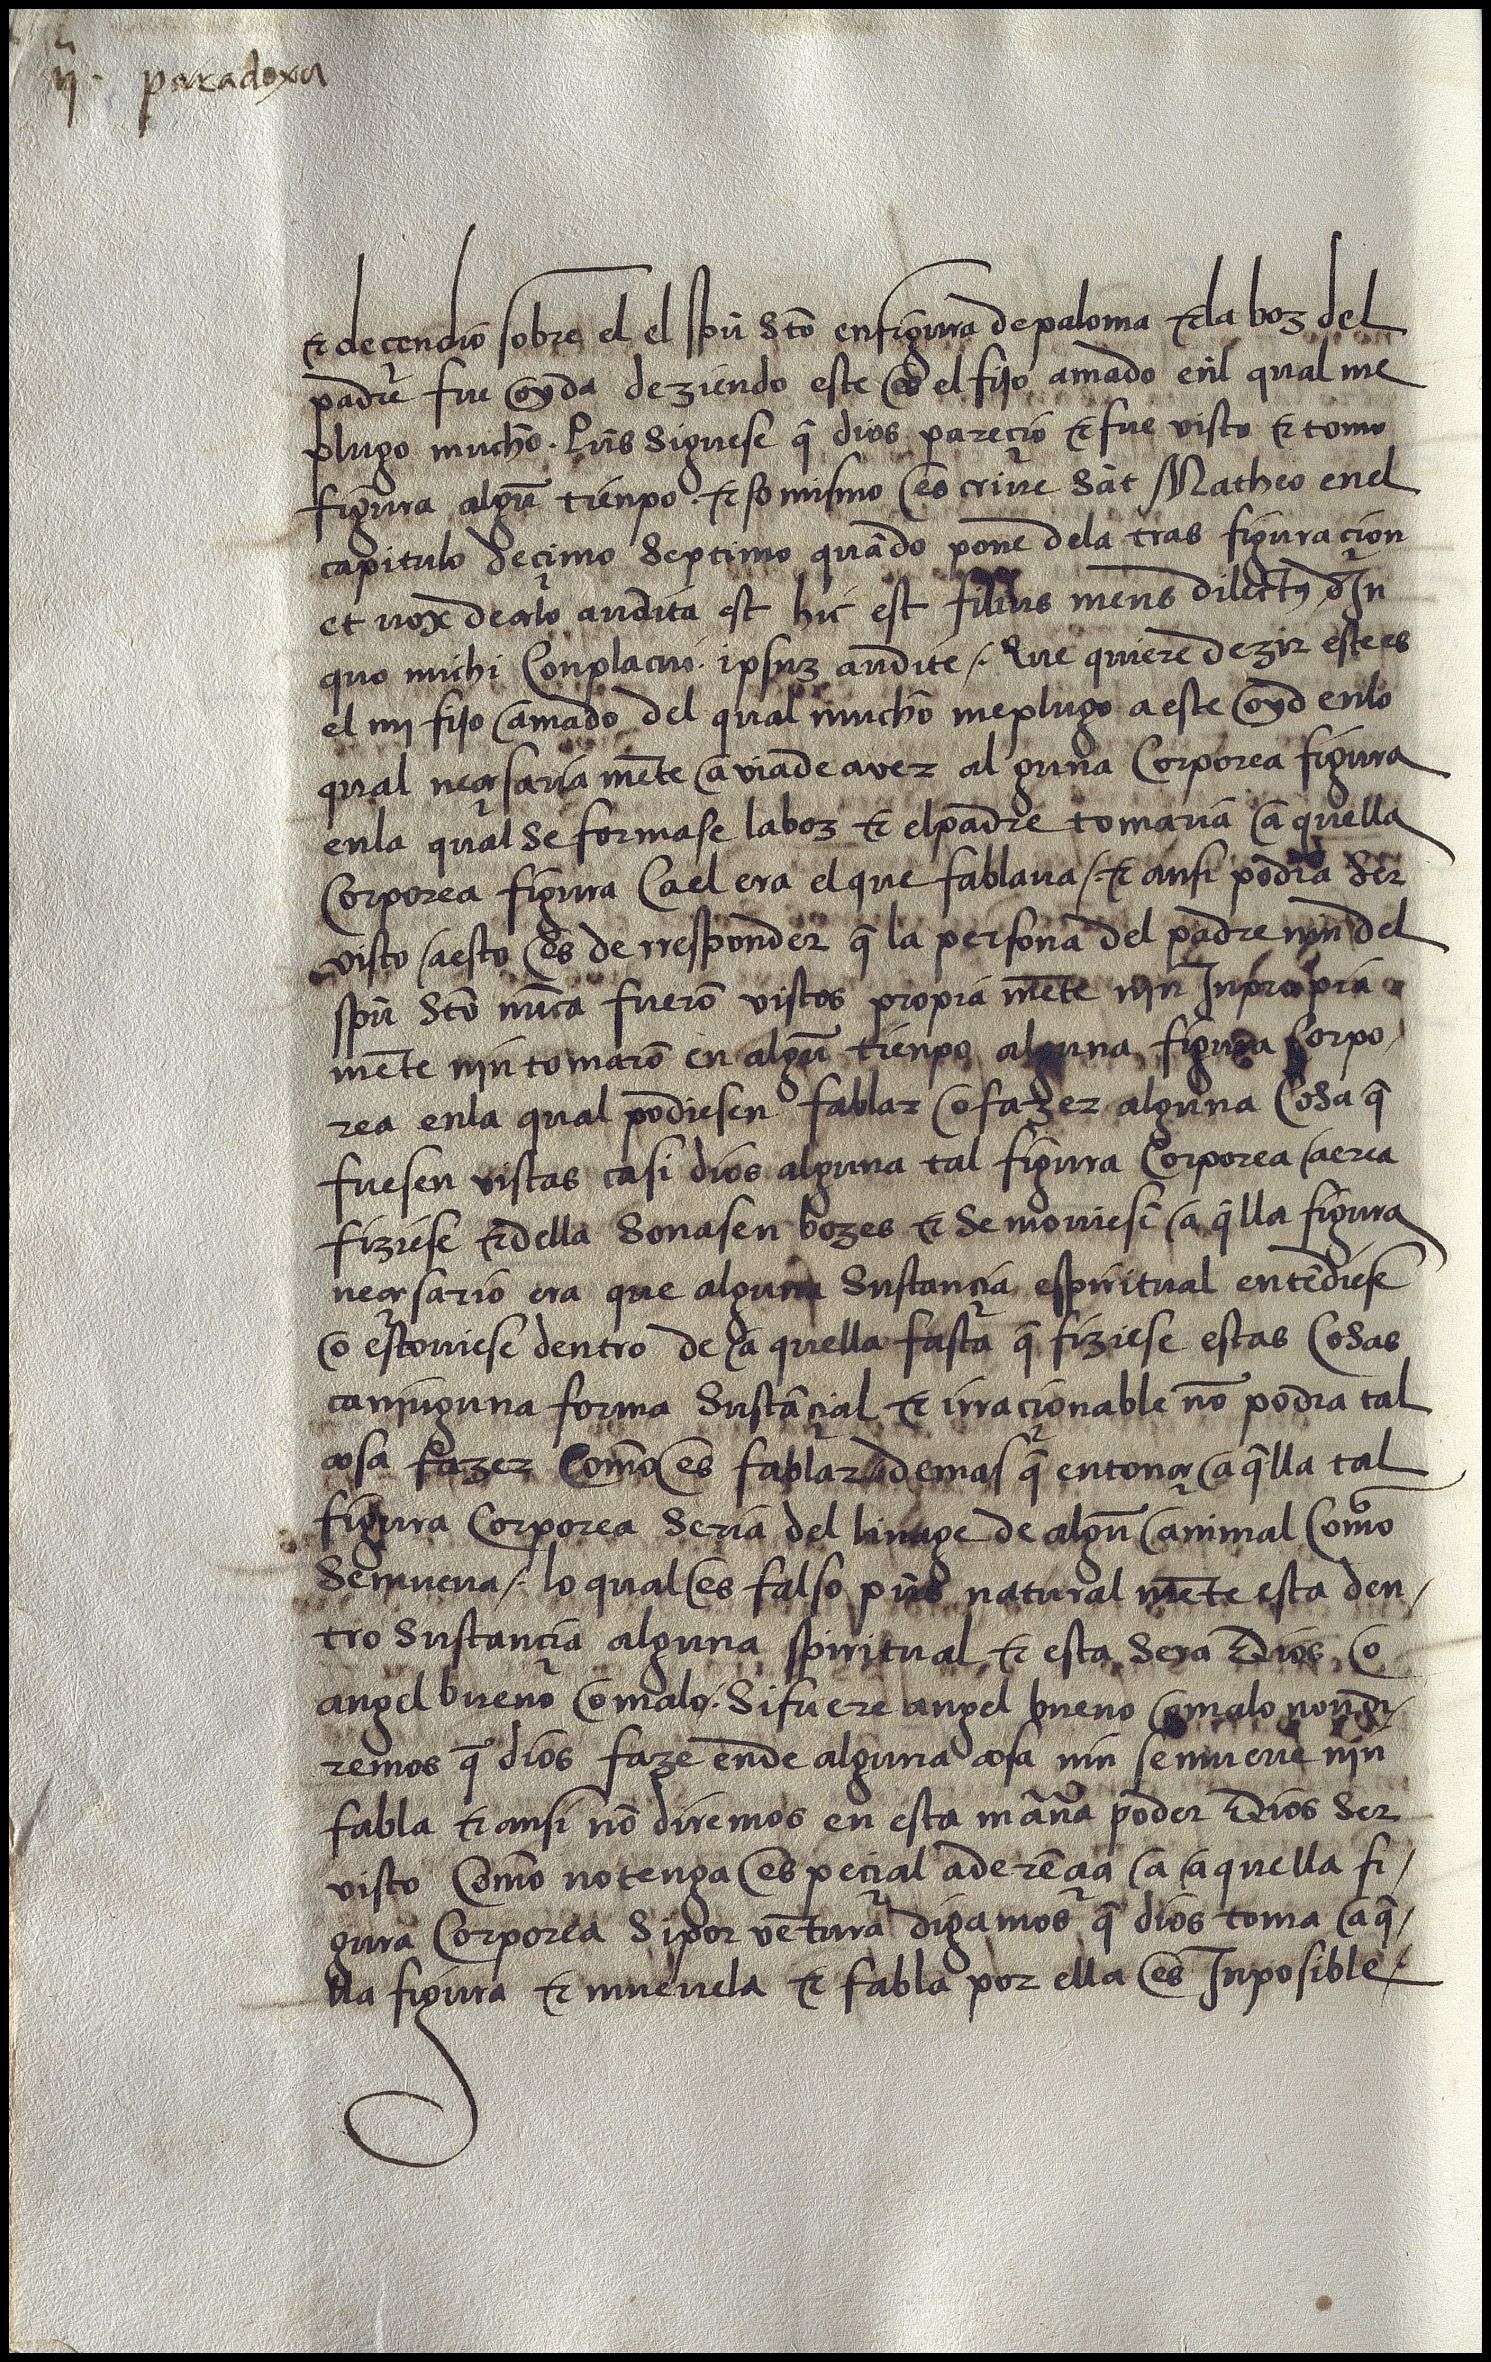 ij. paradoxa
& decendio sobre el el spũ stõ en figura de paloma & la boz del
padre fue oyda deziendo este es el fijo amado enl qual me
plugo mucho. pũs siguese q̃ dios pareçio & fue visto & tomo
figura algũ tienpo. & so mismo escriue sãt Matheo enel
capitulo deçimo septimo quãdo pone dela tras figuraçion
et vox de celo audita est hic est filius meus dilectus In
quo michi Conplacui. ipsuz audite /. Que quiere dezir este es
el mj fijo amado del qual mucho me plugo a este oyd enlo
qual neçesaria mẽte avia de aver alguna Corporea figura
enla qual se formase la boz & el padre tomaria aquella
Corporea figura Ca el era el que fablaua /. & ansi podria ser
visto / a esto es de rresponder q̃ la persona del padre nin del
spũ stõ nũca fuerõ vistos propia mẽte nin Inpropia
mẽte nin tomarõ en algũ tienpo alguna figura Corpo/
rea enla qual podiesen fablar o fazer alguna Cosa q̃
fuesen vistas ca si dios alguna tal figura Corporea aerea
fiziese & della sonasen bozes & se mouiese aq̃lla figura
neçesario era que alguna sustançia espiritual entẽdiese
o estouiese dentro de aquella fasta q̃ fiziese estas Cosas
ca ninguna forma sustãçial & irraçionable nõ podra tal
cosa fazer Como es fablar demas q̃ entonçe aq̃lla tal
figura Corporea seria del linage de algũ animal Como
se mueva /. lo qual es falso pũs natural mẽte esta den/
tro sustançia alguna spiritual & esta sera Dios o
angel bueno o malo. Si fuere angel bueno o malo non di/
remos q̃ dios faze ende alguna cosa nin se mueve nin
fabla & ansi nõ diremos en esta mãña poder Dios ser
visto Como no tenga espeçial aderẽçia a aquella fi/
gura Corporea Si por vẽtura digamos q̃ dios toma aq̃/
lla figura & muevela & fabla por ella es Inposible /.